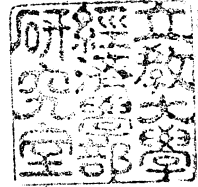 立教大學
經濟學部
研究室